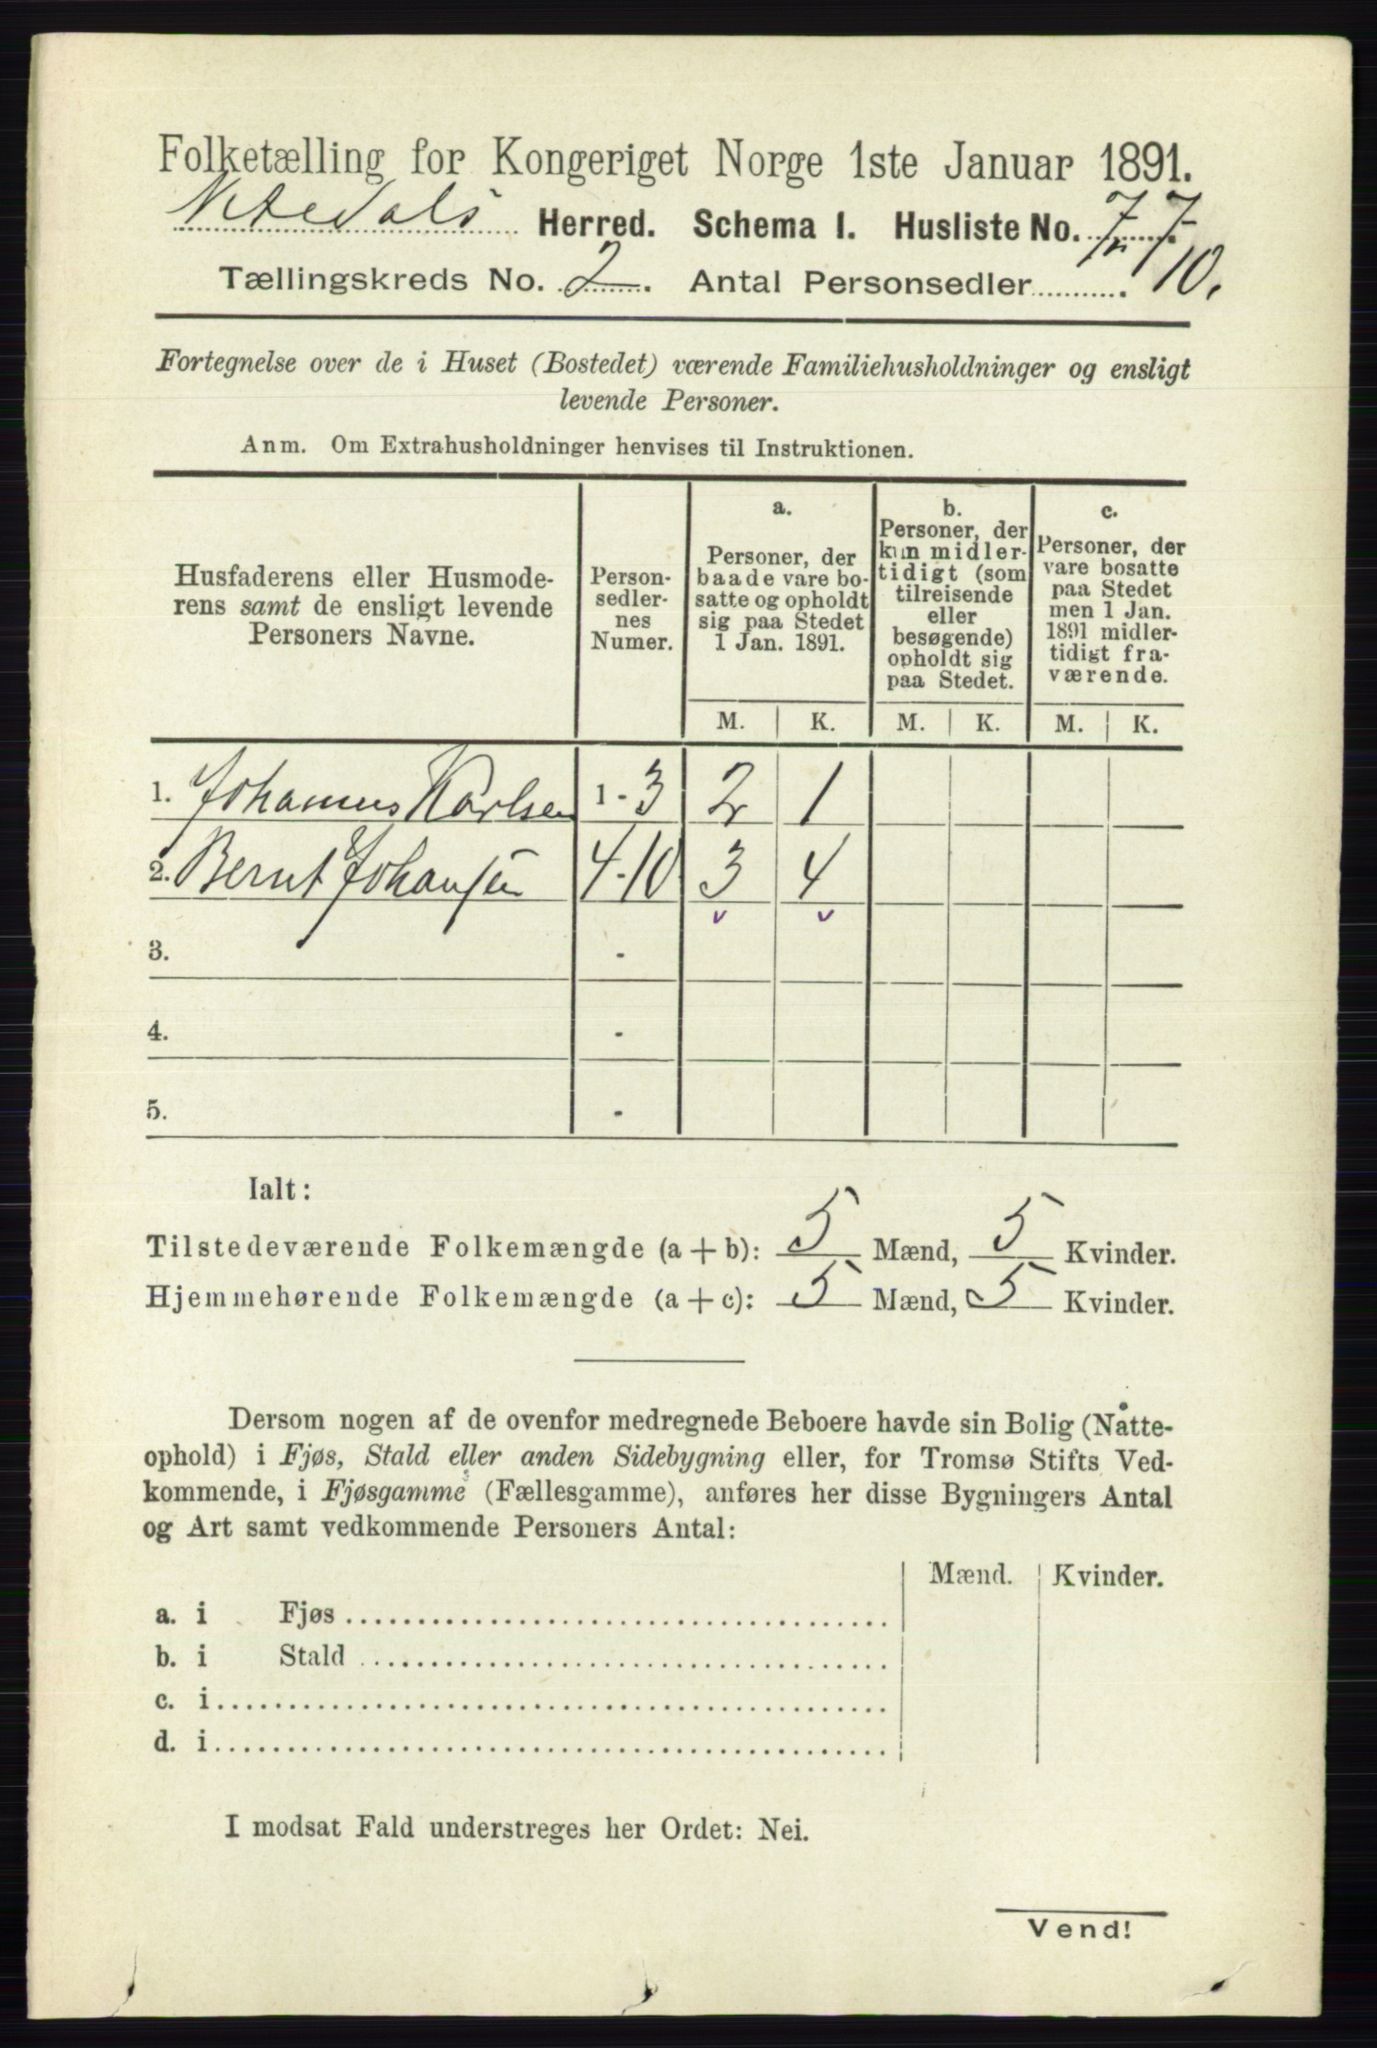 Folketælling for Kongeriget Norge 1ste Januar 1891.
Nitedals Herred. Schema I. Husliste No. 77.
Tællingskreds No. 2. Antal Personsedler 10.
Fortegnelse over de i Huset (Bostedet) værende Familiehusholdninger og ensligt
levende Personer.
Anm. Om Extrahusholdninger henvises til Instruktionen.
Husfaderens eller Husmode-
rens samt de ensligt levende
Personers Navne.
Person-
sedler-
nes
Numer.
a.
Personer, der
baade vare bo-
satte og opholdt
sig paa Stedet
1 Jan. 1891.
b.
Personer, der
kun midler-
tidigt (som
tilreisende
eller
besøgende)
opholdt sig
paa Stedet.
c.
Personer, der
vare bosatte
paa Stedet
men 1 Jan.
1891 midler-
tidigt fra-
værende.
M. K. M. K. M. K.
1. Johannes Karlsen 1-3 2 1
2. Bernt Johansen 4-10 3 4
v v
3. -
4. -
5. -
Ialt:
Tilstedeværende Folkemængde (a + b): 5 Mænd, 5 Kvinder.
Hjemmehørende Folkemængde (a + c): 5 Mænd, 5 Kvinder.
Dersom nogen af de ovenfor medregnede Beboere havde sin Bolig (Natte-
ophold) i Fjøs, Stald eller anden Sidebygning eller, for Tromsø Stifts Ved-
kommende, i Fjøsgamme (Fællesgamme), anføres her disse Bygningers Antal
og Art samt vedkommende Personers Antal:
Mænd. Kvinder.
a. i Fjøs
b. i Stald
c. i
d. i
I modsat Fald understreges her Ordet: Nei.
Vend!